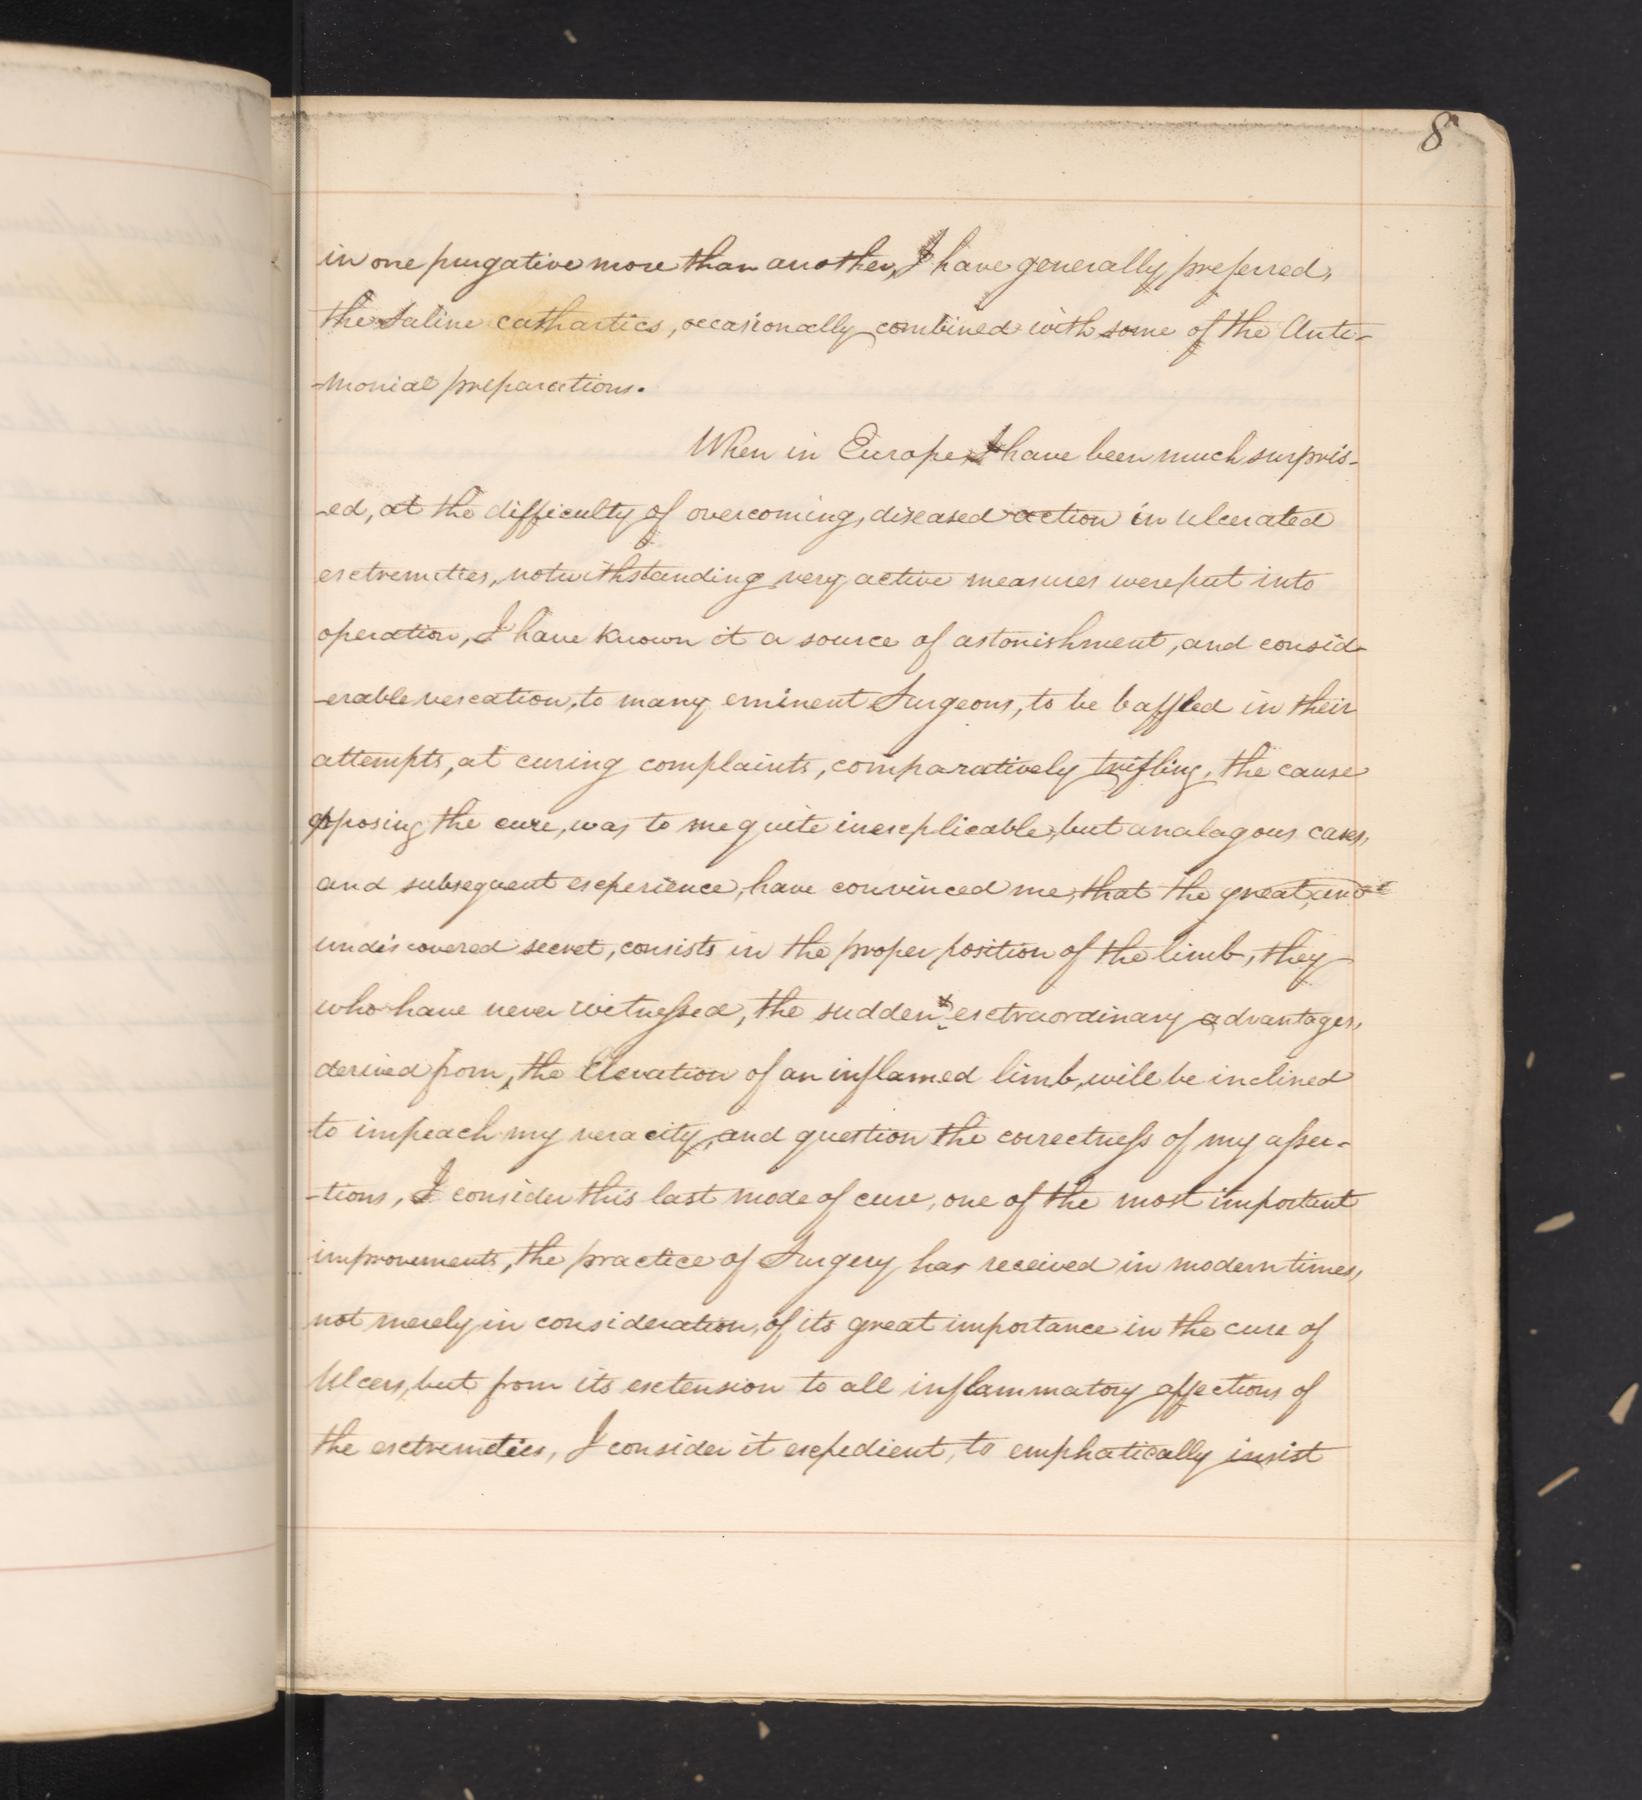 8
in one purgative more than another, I have generally preferred,
the Saline cathartics, occasionally combined with some of the Anti-
-monial preparations.
When in Europe, I have been much surpris-
-ed, at the difficulty of overcoming, diseased action in ulcerated
extremities, notwithstanding very active measures were put into
operation, I have known it a source of astonishment, and consid-
-erable vexation, to many eminent Surgeons, to be baffled in their
attempts, at curing complaints, comparatively trifling, the cause
opposing the cure, was to me quite inexplicable, but analagous cases,
and subsequent experience, have convinced me, that the great, and
undiscovered secret, consists in the proper position of the limb, they
who have never witnessed, the sudden & extraordinary advantages,
derived from, the Elevation of an inflamed limb, will be inclined
to impeach my veracity, and question the correctness of my asser-
-tions, I consider this last mode of cure, one of the most important
improvements, the practice of Surgery has received in modern times,
not merely in consideration, of its great importance in the cure of
Ulcers, but from its extension to all inflammatory affections of
the extremities, I consider it expedient, to emphatically insist